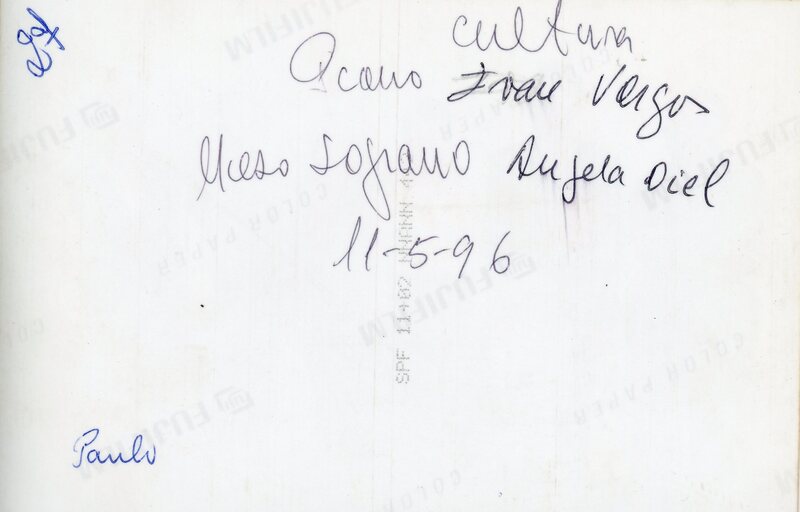 cultura
Piano Ivan Vargas
Meso Soprano Angela Diel
11-5-96
SPF 11402 NNNNN 4
Paulo
FUJIFILM
COLOR PAPER